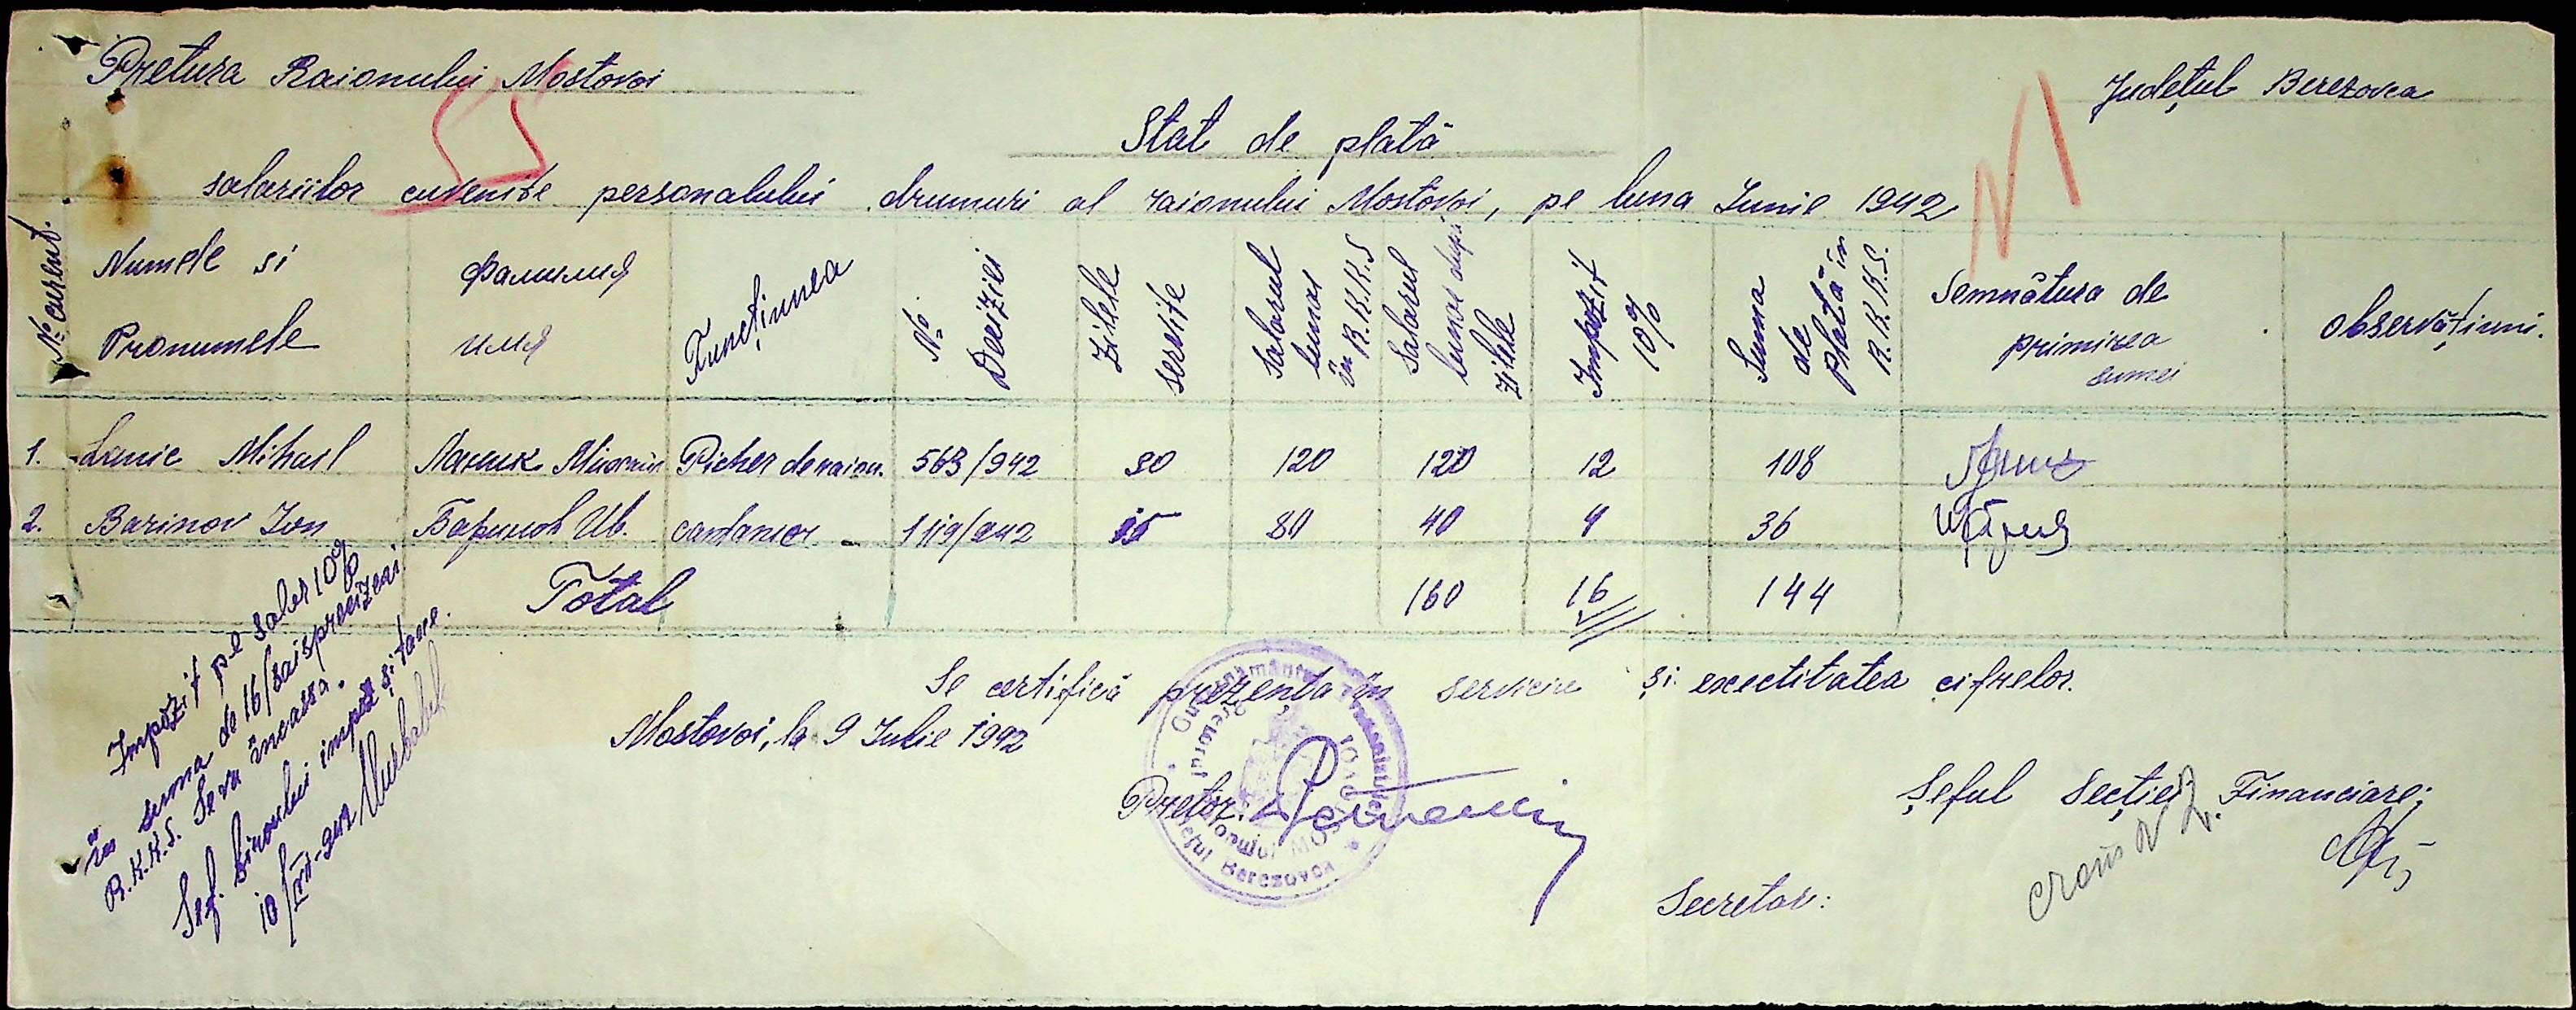 Pretura Raionului Mostovoi
Județul Berezovca
Stat de plată
salariilor cuvenite personalului drumuri al raionului Mostovoi, pe luna Iunie 1942
No curent.
Numele si Pronumele
Фамилия имя
Funcțiunea
No Deciziei
Zilele servite
Salarul lunar în R.K.K.S
Salarul lunar după zilele
Impozit 10%
Suma de plată în R.K.K.S.
Semnătura de primirea sumei
Observațiuni.
1. Lanic Mihail Ланик Михаил Picher de raion. 563/942 30 120 120 12 108
2. Barinov Ion Баринов Ив. cantonier 1119/942 15 80 40 4 36
Total 160 16 144
Se certifică prezența în serviciu și exectitatea cifrelor.
Mostovoi, la 9 Iulie 1942
Pretor:
Șeful Secției Financiare:
Secretar:
Impozit pe salar 10%
în suma de 16/saisprezizeci
R.K.K.S. Se va încassa.
Șef. biroului impoz și taxe.
10/VII-942
Guvernământul Transnistriei
Pretorul Raionului Mostovoi
Județul Berezovca